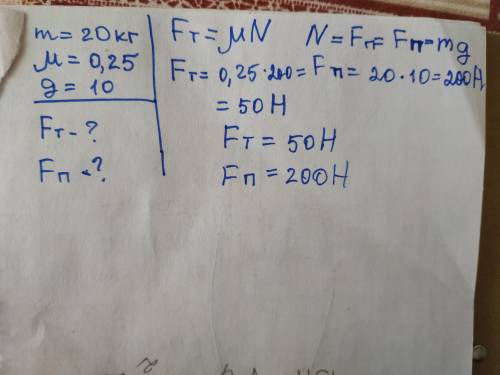 m = 20 кг
μ = 0,25
g = 10
Fт - ?
Fп - ?
Fт = μN N = Fт = Fп = mg
Fт = 0,25 · 200 = Fп = 20 · 10 = 200Н
= 50 Н
Fт = 50 Н
Fп = 200Н